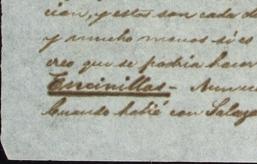 cion, y estas son cada d
y mucho menos si es
creo que se podria hacer
Encinillas - Nunca
Cuando hablé con Salaza